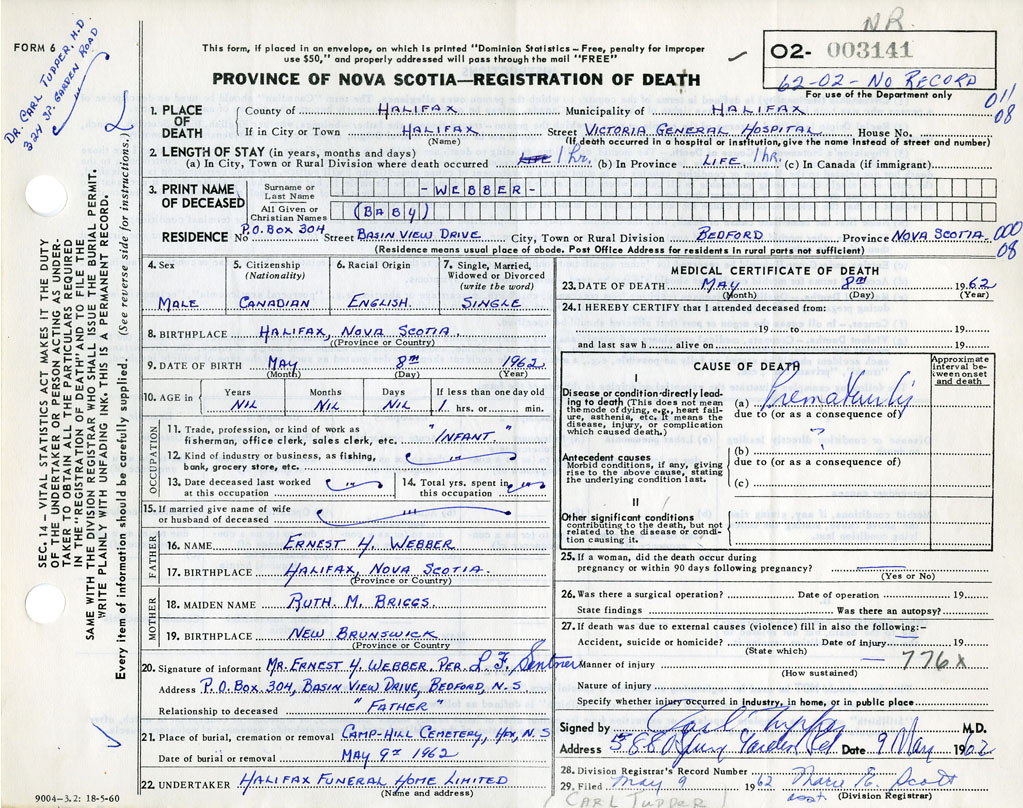 N.R.
FORM 6
DR. CARL TUPPER, M.D
324 SP. GARDEN ROAD
This form, if placed in an envelope, on which is printed "Dominion Statistics – Free, penalty for improper
use $50," and properly addressed will pass through the mail "FREE"
PROVINCE OF NOVA SCOTIA—REGISTRATION OF DEATH
02- 003141
62-02-NO RECORD
For use of the Department only
011
08
1. PLACE OF DEATH
County of HALIFAX Municipality of HALIFAX
If in City or Town HALIFAX Street VICTORIA GENERAL HOSPITAL House No.
(Name) (If death occurred in a hospital or institution, give the name instead of street and number)
2. LENGTH OF STAY (in years, months and days)
(a) In City, Town or Rural Division where death occurred LIFE 1 hr. (b) In Province LIFE 1 hr. (c) In Canada (if immigrant)
3. PRINT NAME OF DECEASED
Surname or Last Name - WEBBER -
All Given or Christian Names (BABY)
RESIDENCE No P.O. BOX 304 Street BASIN VIEW DRIVE City, Town or Rural Division BEDFORD Province NOVA SCOTIA 000
08
(Residence means usual place of abode. Post Office Address for residents in rural parts not sufficient)
4. Sex
MALE
5. Citizenship (Nationality)
CANADIAN
6. Racial Origin
ENGLISH.
7. Single, Married, Widowed or Divorced (write the word)
SINGLE
8. BIRTHPLACE HALIFAX, NOVA SCOTIA.
(Province or Country)
9. DATE OF BIRTH MAY 8TH 1962
(Month) (Day) (Year)
10. AGE in Years Months Days If less than one day old
NIL NIL NIL 1 hrs. or min.
OCCUPATION
11. Trade, profession, or kind of work as
fisherman, office clerk, sales clerk, etc. "INFANT"
12. Kind of industry or business, as fishing,
bank, grocery store, etc. "
13. Date deceased last worked
at this occupation "
14. Total yrs. spent in
this occupation "
15. If married give name of wife
or husband of deceased "
FATHER
16. NAME ERNEST H. WEBBER
17. BIRTHPLACE HALIFAX, NOVA SCOTIA.
(Province or Country)
MOTHER
18. MAIDEN NAME RUTH M. BRIGGS.
19. BIRTHPLACE NEW BRUNSWICK
(Province or Country)
20. Signature of informant MR. ERNEST H. WEBBER PER
Address P.O. BOX 304, BASIN VIEW DRIVE, BEDFORD, N.S
Relationship to deceased "FATHER"
21. Place of burial, cremation or removal CAMP-HILL CEMETERY, HFX, N.S
Date of burial or removal MAY 9TH 1962
22. UNDERTAKER HALIFAX FUNERAL HOME LIMITED
(Name and address)
MEDICAL CERTIFICATE OF DEATH
23. DATE OF DEATH MAY 8TH 1962
(Month) (Day) (Year)
24. I HEREBY CERTIFY that I attended deceased from:
19 to 19
and last saw h alive on 19
CAUSE OF DEATH
Approximate interval between onset and death
I
Disease or condition directly leading
to death (This does not mean
the mode of dying, e.g., heart failure,
asthenia, etc. It means the
disease, injury, or complication
which caused death.)
(a) Prematurity
due to (or as a consequence of)
Antecedent causes
Morbid conditions, if any, giving
rise to the above cause, stating
the underlying condition last.
(b)
due to (or as a consequence of)
(c)
II
Other significant conditions
contributing to the death, but not
related to the disease or condition
causing it.
25. If a woman, did the death occur during
pregnancy or within 90 days following pregnancy?
(Yes or No)
26. Was there a surgical operation? Date of operation 19
State findings Was there an autopsy?
27. If death was due to external causes (violence) fill in also the following:—
Accident, suicide or homicide? Date of injury 19
(State which)
Manner of injury 776x
(How sustained)
Nature of injury
Specify whether injury occurred in industry, in home, or in public place
Signed by Carl Tupper M.D.
Address Date 9 May 1962
28. Division Registrar's Record Number
29. Filed May 9 1962 Marie E. Scott
asst (Division Registrar)
CARL TUPPER
9004-3.2: 18-5-60
SEC. 14 – VITAL STATISTICS ACT MAKES IT THE DUTY
OF THE UNDERTAKER OR PERSON ACTING AS UNDERTAKER
TO OBTAIN ALL THE PARTICULARS REQUIRED
IN THE "REGISTRATION OF DEATH" AND TO FILE THE
SAME WITH THE DIVISION REGISTRAR WHO SHALL ISSUE THE BURIAL PERMIT.
WRITE PLAINLY WITH UNFADING INK. THIS IS A PERMANENT RECORD.
Every item of information should be carefully supplied. (See reverse side for instructions.)